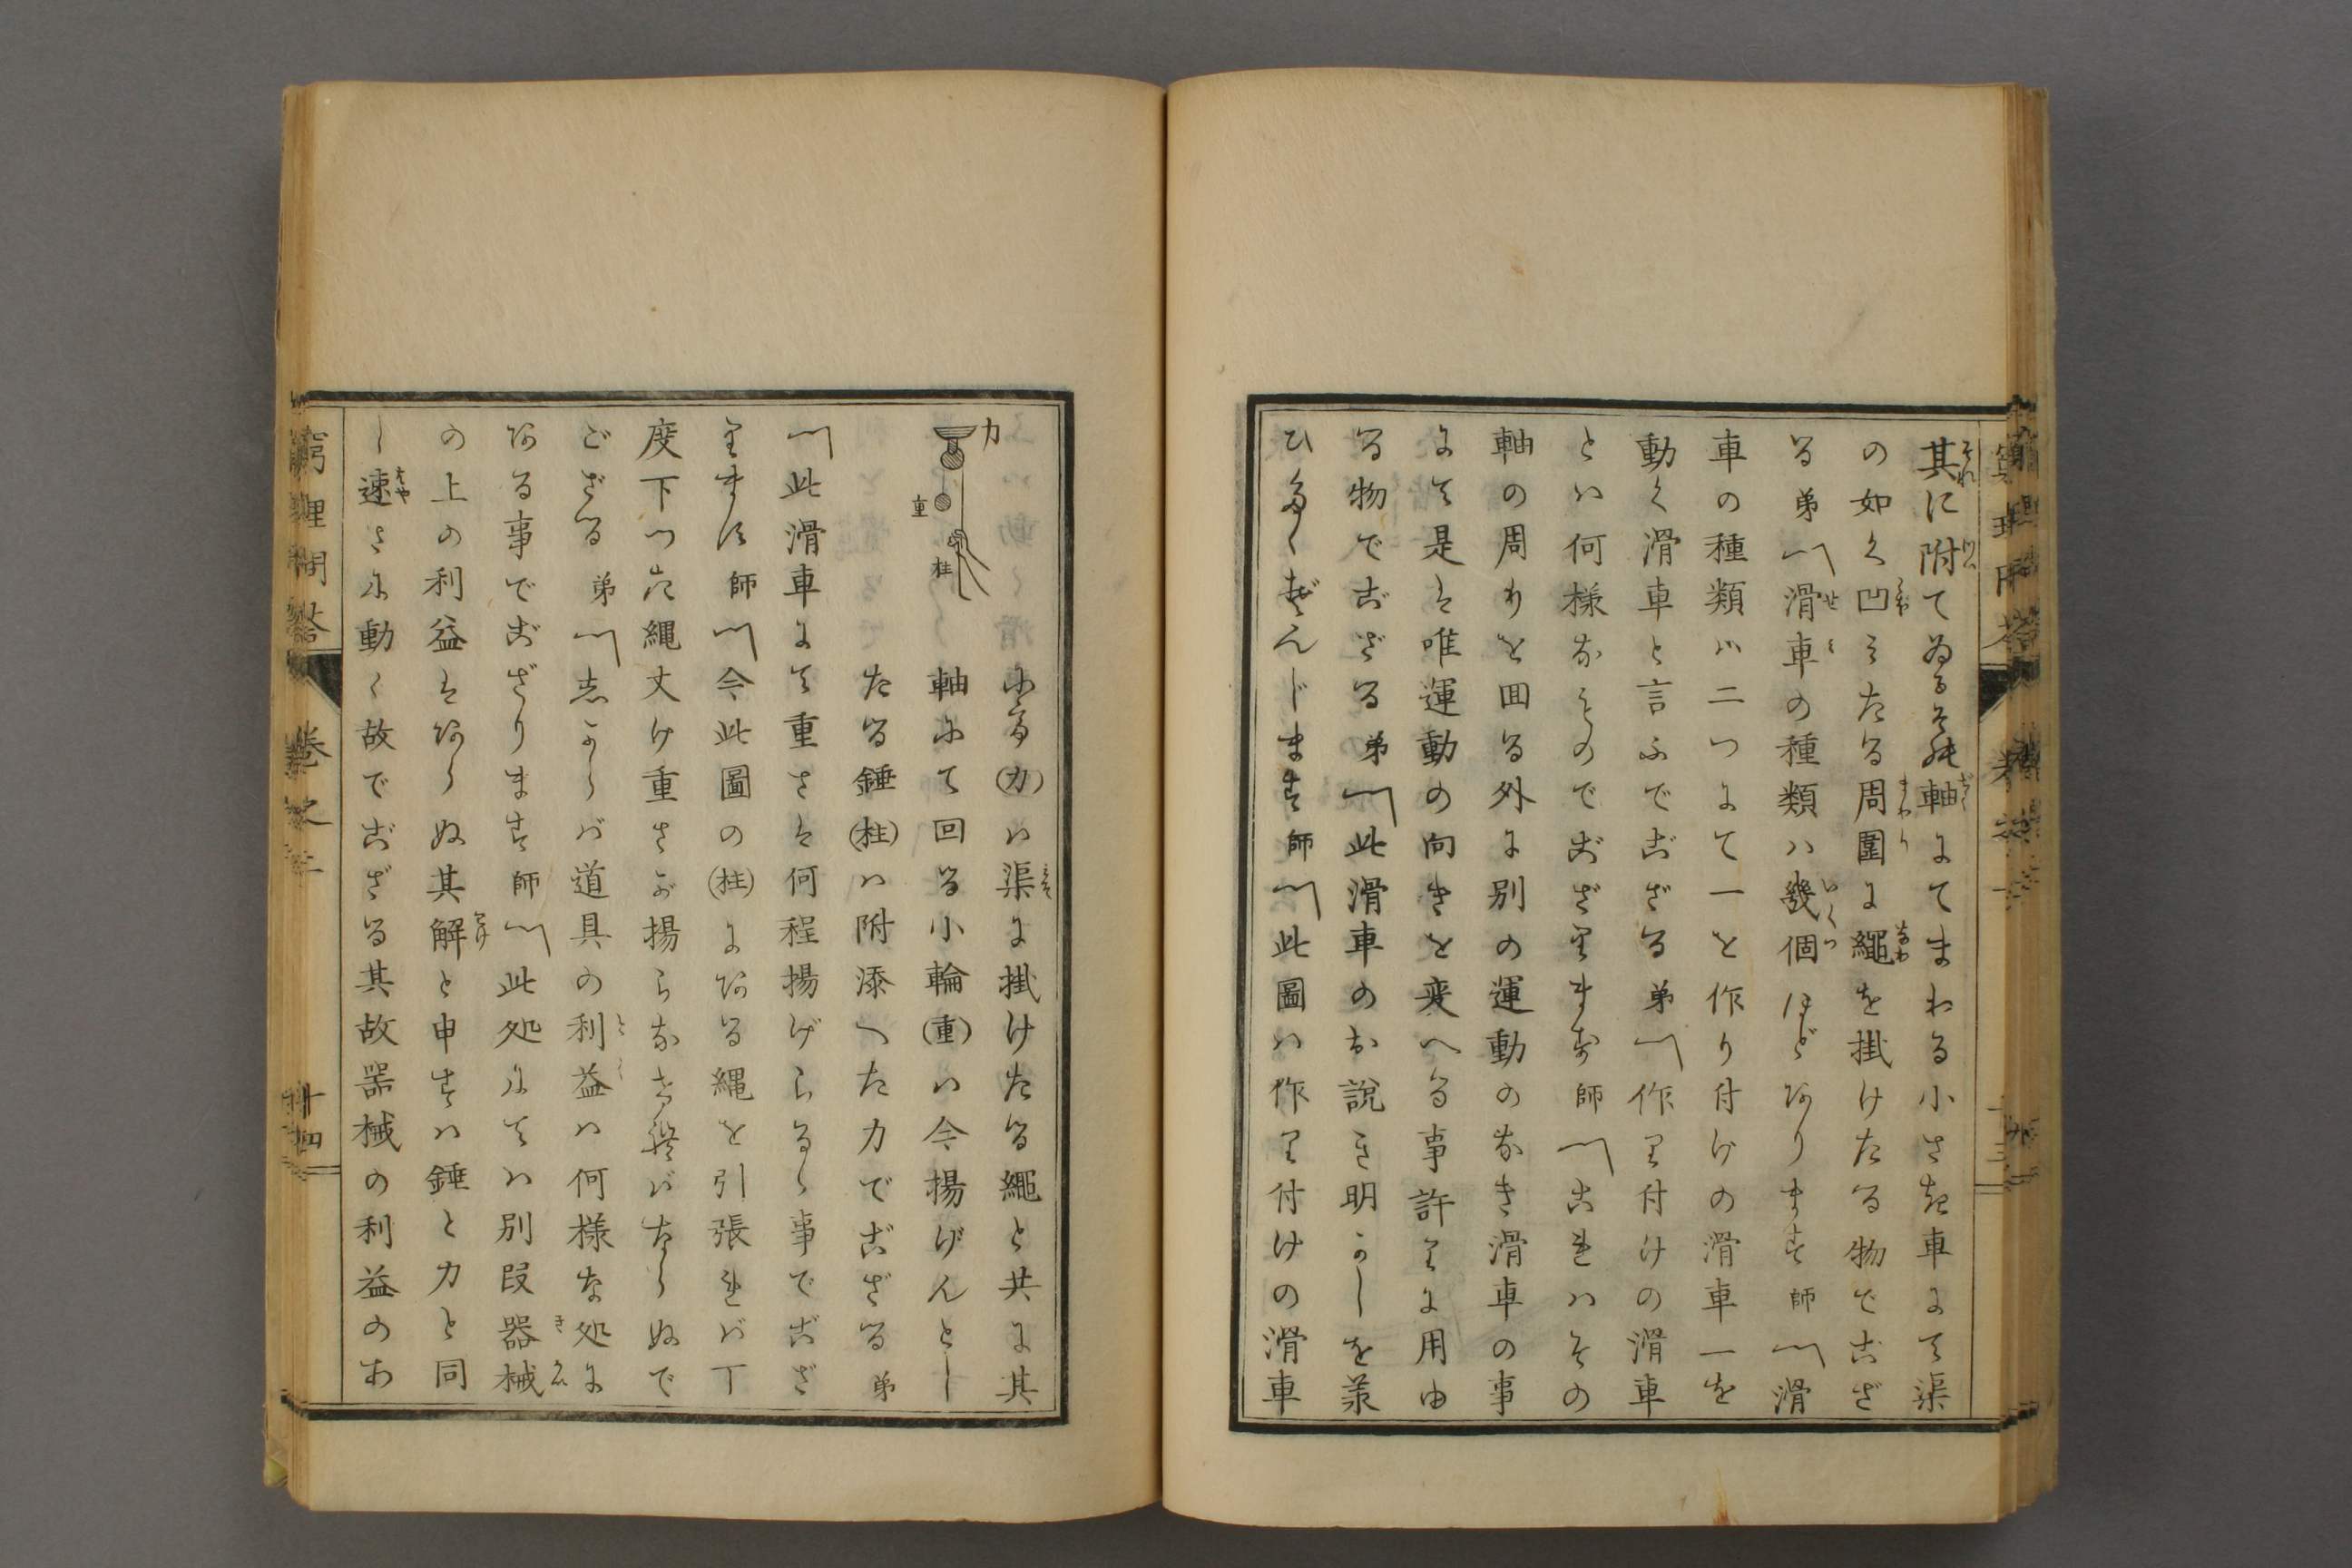 其に附てゐるそれ軸にてまわる小さき車にて渠
の如く凹みたる周圍に繩を掛けたる物でござ
る弟〽滑車の種類ハ幾個ほどあります師〽滑
車の種類ハ二つにて一を作り付けの滑車一を
動く滑車と言ふでござる弟〽作り付けの滑車
とハ何様なものでござります師〽これハその
軸の周りを回る外に別の運動のなき滑車の事
にて是は唯運動の向きを変へる事許りに用ゆ
る物でござる弟〽此滑車のお說き明かしを蒙
ひたくぞんじます師〽此圖ハ作り付けの滑車
力
重
柱
にて(力)ハ渠に掛けたる繩と共に其
軸にて回る小輪(重)ハ今揚げんとし
たる錘(柱)ハ附添へた力でござる弟
〽此滑車にて重さは何程揚げらるゝ事でござ
ります師〽今此圖の(柱)にある縄を引張れバ丁
度下つた縄丈け重さが揚らなけれバならぬで
ござる弟〽志からバ道具の利益ハ何様な処に
ある事でござります師〽此処にてハ別段器械
の上の利益はあらぬ其解と申すハ錘と力と同
し速さに動く故でござる其故器械の利益のあ
窮理問答
卷之二
十四